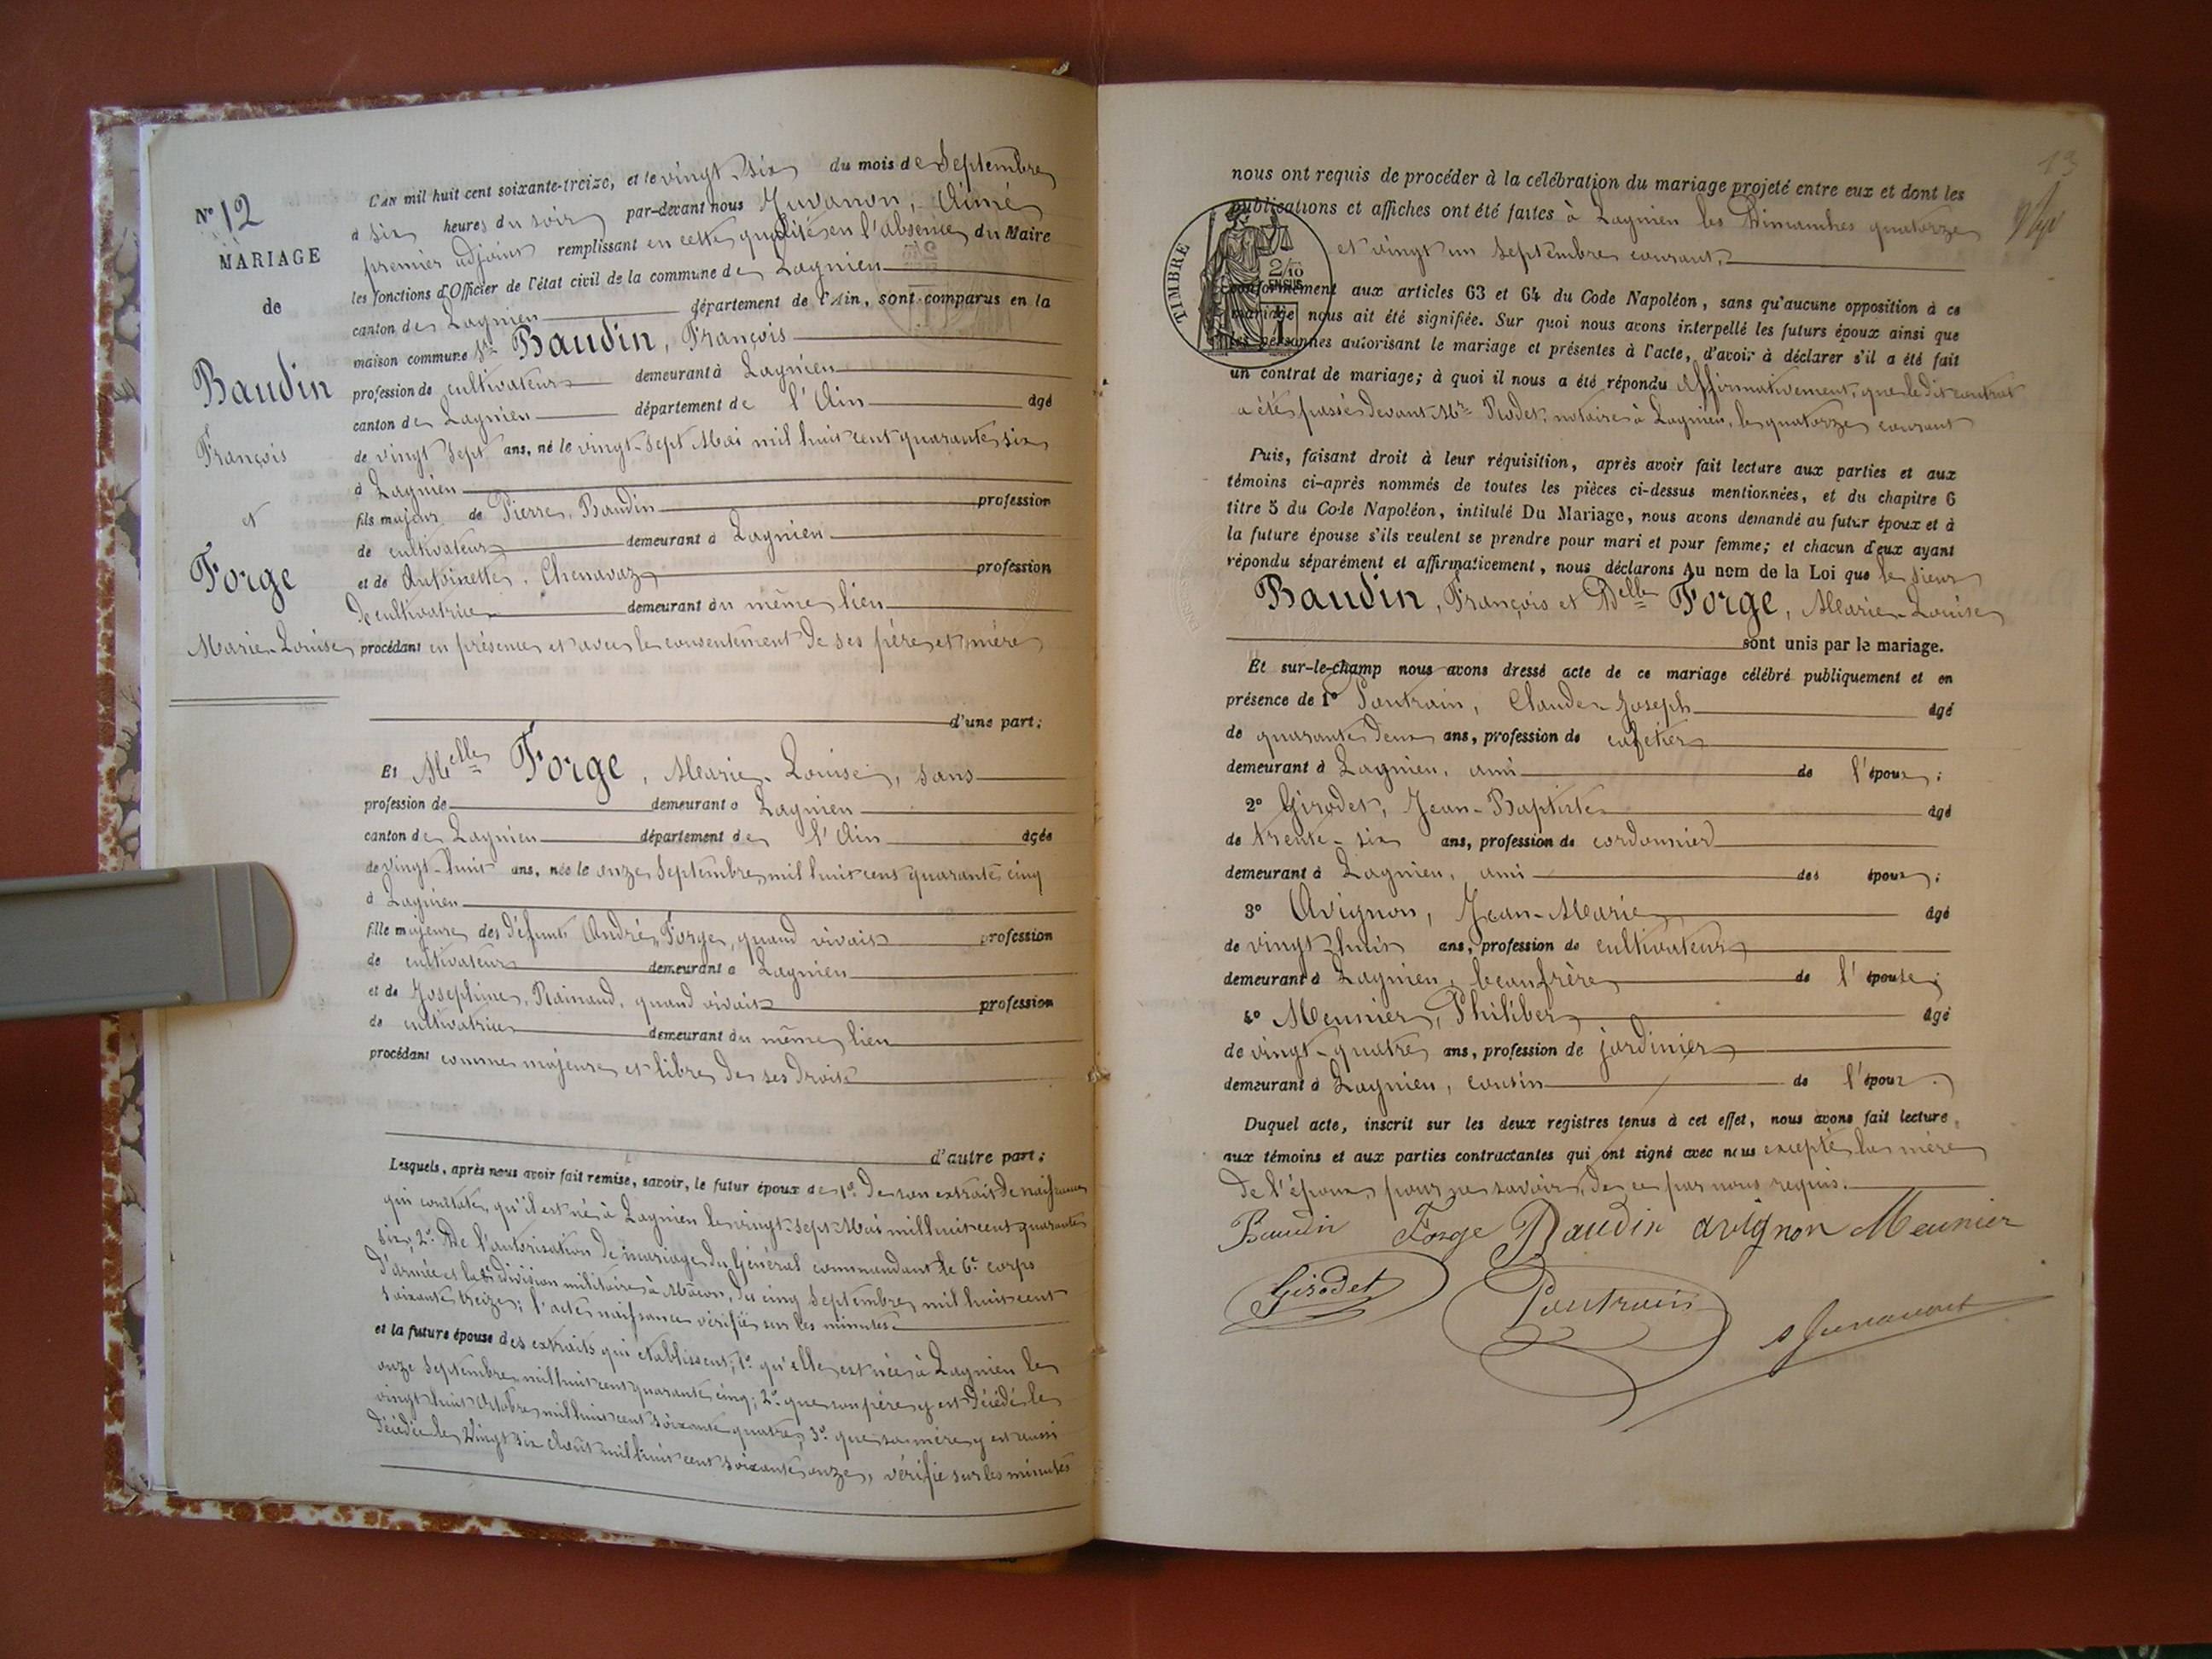 N° 12
MARIAGE
de
Baudin
François
et
Forge
Marie-Louise
L'an mil huit cent soixante-treize, et le vingt-six du mois de Septembre
à six heures du soir par-devant nous Juvanon, Aimé
premier adjoint remplissant en cette qualité en l'absence du Maire
les fonctions d'Officier de l'état civil de la commune de Lagnieu
canton de Lagnieu département de l'Ain, sont comparus en la
maison commune Sr Baudin, François
profession de cultivateur demeurant à Lagnieu
canton de Lagnieu département de l'Ain âgé
de vingt sept ans, né le vingt-sept Mai mil huit cent quarante six
à Lagnieu
fils majeur de Pierre Baudin profession
de cultivateur demeurant à Lagnieu
et de Antoinette Chenavaz profession
de cultivatrice demeurant au même lieu
procédant en présence et avec le consentement de ses père et mère
d'une part;
Et Melle Forge, Marie-Louise, sans
profession de demeurant à Lagnieu
canton de Lagnieu département de l'Ain âgée
de vingt-huit ans, née le onze Septembre mil huit cent quarante cinq
à Lagnieu
fille majeure des défunts André Forge, quand vivait profession
de cultivateur demeurant à Lagnieu
et de Josephine Rainaud, quand vivait profession
de cultivatrice demeurant au même lieu
procédant comme majeure et libre de ses droits
d'autre part;
Lesquels, après nous avoir fait remise, savoir, le futur époux de 1° de son extrait de naissance
qui constate qu'il est né à Lagnieu le vingt-sept Mai mil huit cent quarante
six; 2° De l'autorisation de mariage du Général commandant le 6e corps
d'armée et la division militaire à Mâcon, du cinq Septembre mil huit cent
soixante treize; l'acte naissance vérifié sur les minutes
et la future épouse des extraits qui établissent; 1° qu'elle est née à Lagnieu le
onze Septembre mil huit cent quarante cinq; 2° que son père y est décédé le
vingt huit Octobre mil huit cent soixante quatre; 3° que sa mère y est aussi
décédée le vingt six Août mil huit cent soixante onze, vérifié sur les minutes
13
nous ont requis de procéder à la célébration du mariage projeté entre eux et dont les
publications et affiches ont été faites à Lagnieu les Dimanches quatorze
et vingt un Septembre courant.
TIMBRE
2/10
EN SUS
conformément aux articles 63 et 64 du Code Napoléon, sans qu'aucune opposition à ce
mariage nous ait été signifiée. Sur quoi nous avons interpellé les futurs époux ainsi que
les personnes autorisant le mariage et présentes à l'acte, d'avoir à déclarer s'il a été fait
un contrat de mariage; à quoi il nous a été répondu affirmativement, que le dit contrat
a été passé devant Me Rodet, notaire à Lagnieu, le quatorze courant
Puis, faisant droit à leur réquisition, après avoir fait lecture aux parties et aux
témoins ci-après nommés de toutes les pièces ci-dessus mentionnées, et du chapitre 6
titre 5 du Code Napoléon, intitulé Du Mariage, nous avons demandé au futur époux et à
la future épouse s'ils veulent se prendre pour mari et pour femme; et chacun d'eux ayant
répondu séparément et affirmativement, nous déclarons Au nom de la Loi que le sieur
Baudin, François et Delle Forge, Marie-Louise
sont unis par le mariage.
Et sur-le-champ nous avons dressé acte de ce mariage célébré publiquement et en
présence de 1° Pautrain, Claude-Joseph âgé
de quarante deux ans, profession de cafetier
demeurant à Lagnieu, ami de l'époux;
2° Girodet, Jean-Baptiste âgé
de trente-six ans, profession de cordonnier
demeurant à Lagnieu, ami des époux;
3° Avignon, Jean-Marie âgé
de vingt huit ans, profession de cultivateur
demeurant à Lagnieu, beaufrère de l'épouse;
4° Meunier, Philiber âgé
de vingt-quatre ans, profession de jardinier
demeurant à Lagnieu, cousin de l'époux.
Duquel acte, inscrit sur les deux registres tenus à cet effet, nous avons fait lecture
aux témoins et aux parties contractantes qui ont signé avec nous excepté la mère
de l'époux, pour ne savoir, de ce par nous requis.
Baudin Forge Baudin avignon Meunier
Girodet Pautrain